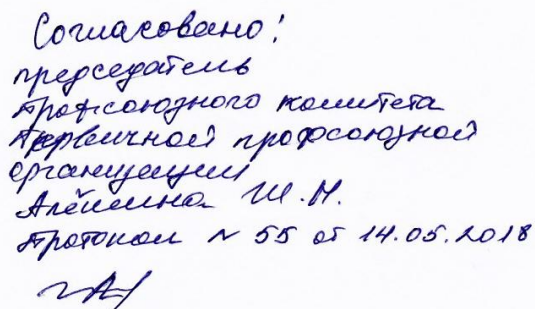 Согласовано!
председатель
Профсоюзного комитета
Первичной профсоюзной
организации
Алёшина Ш.Н.
Протокол № 55 от 14.05.2018